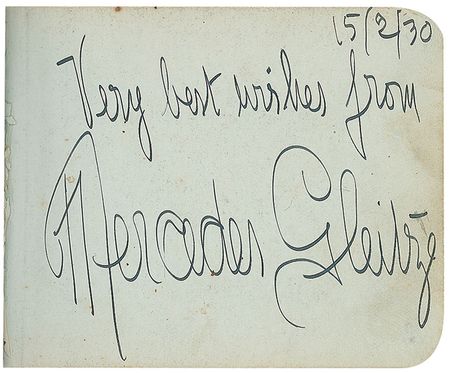 15/2/30
Very best wishes from
Mercedes Gleitze